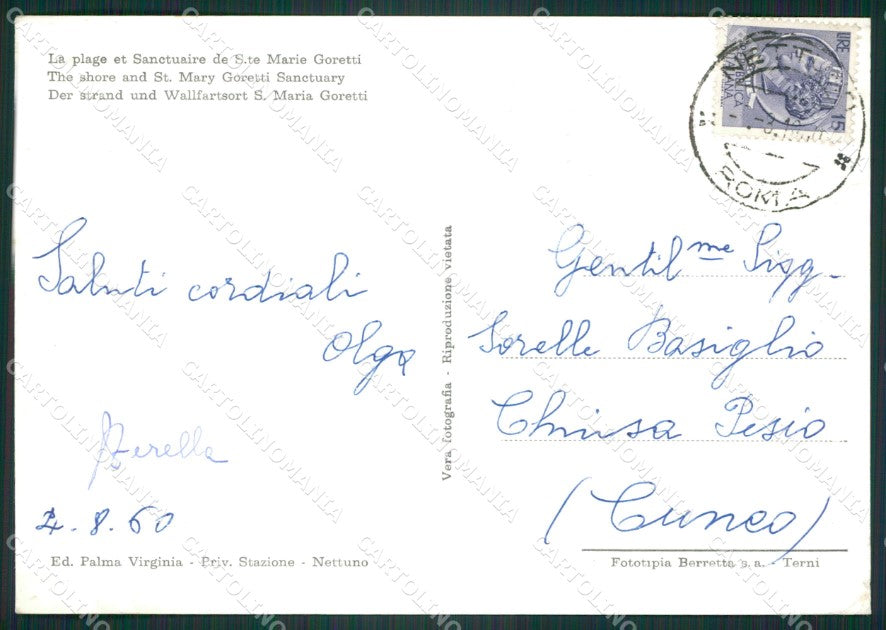 La plage et Sanctuaire de S.te Marie Goretti
The shore and St. Mary Goretti Sanctuary
Der strand und Wallfartsort S. Maria Goretti
Saluti cordiali
Olga
2.8.60
Ed. Palma Virginia - Priv. Stazione - Nettuno
Vera fotografia - Riproduzione vietata
Gentil.me Sigg.
Sorelle Basiglio
Chiusa Pesio
(Cuneo)
Fototipia Berretta s.a. - Terni
LIRE 15
ROMA
CARTOLINOMANIA